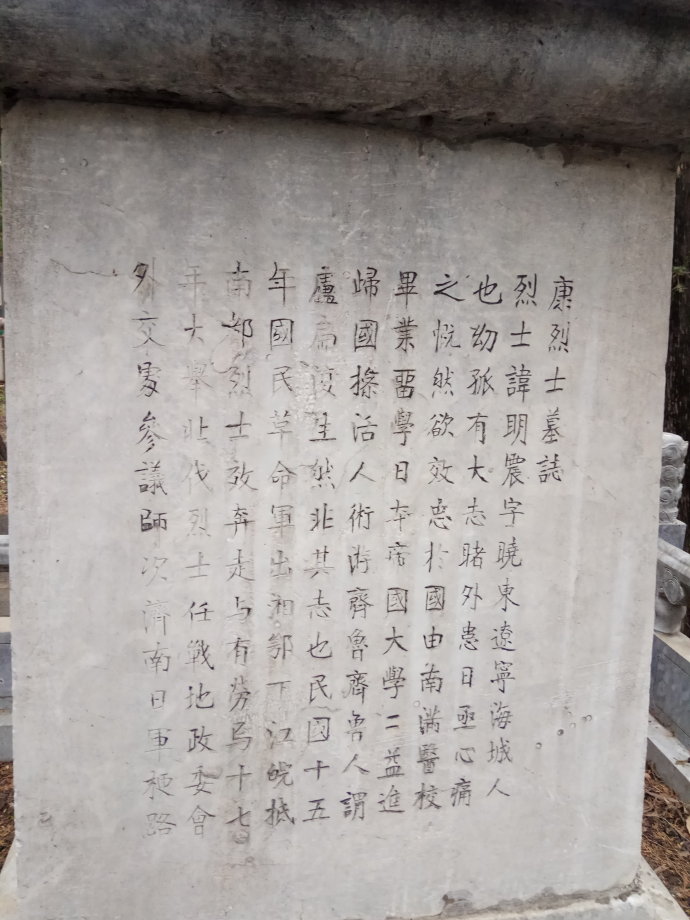 康烈士墓誌
烈士諱明震字曉東遼寧海城人
也幼孤有大志睹外患日亟心痛
之慨然欲效忠於國由南滿醫校
畢業畱學日本帝國大學二益進
歸國搽活人術游齊魯齊魯人謂
盧扁復生然非其志也民國十五
年國民革命軍出湘鄂下江皖抵
南鄀烈士效奔走与有劳焉十七
年大舉北伐烈士任戰地政委會
外交處參議師次濟南日軍梗路